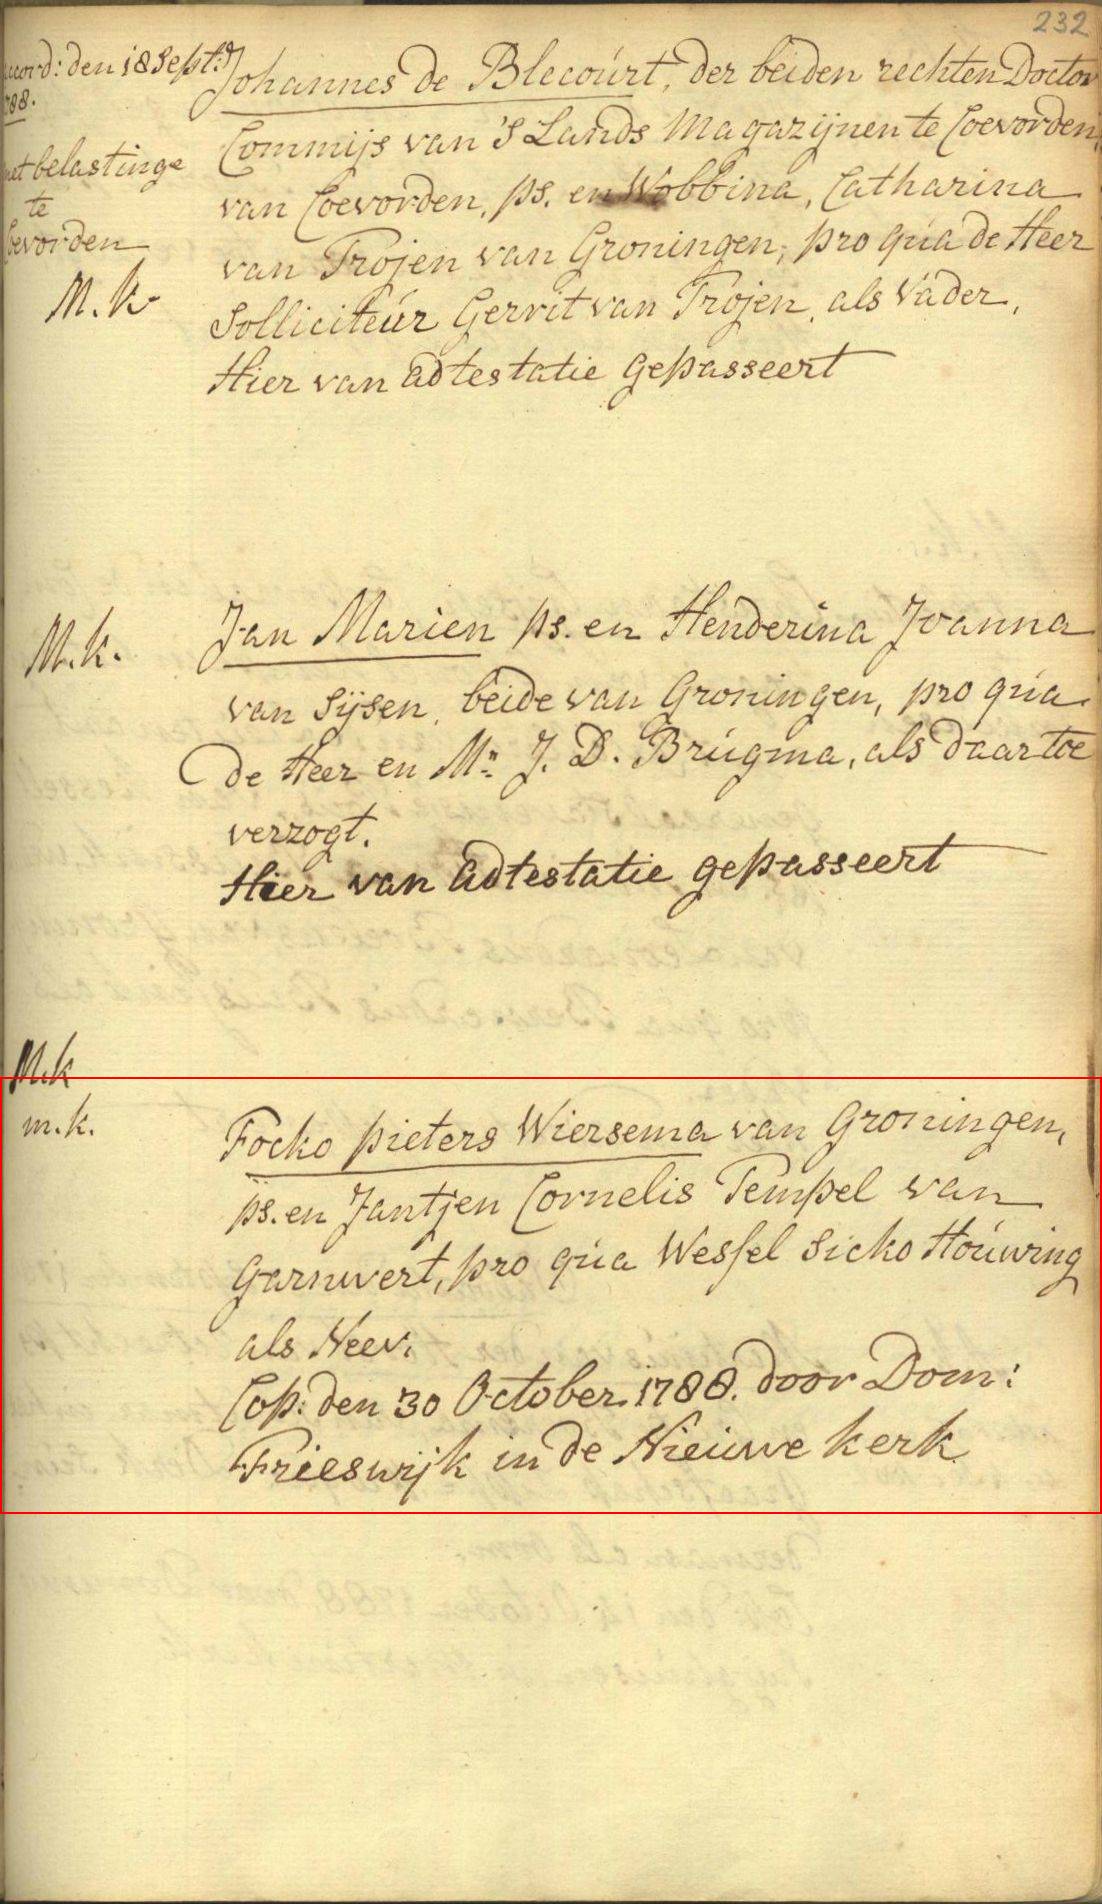 232
den 18 Sept:
Johannes de Blecourt, der beiden rechten Doctor
Commijs van 'S Lands Magazijnen te Coevorden,
met belastinge
van Coevorden, ps. en Wobbina, Catharina
te
Coevorden
van Trojen van Groningen, pro qúa de Heer
M. k
Solliciteúr Gerrit van Trojen, als Vader,
Hier van adtestatie gepasseert
M. k.
Jan Marien ps. en Henderina Joanna
van Sijsen, beide van Groningen, pro qúa
de Heer en Mr. J. D. Brúgma, als daar toe
verzogt.
Hier van adtestatie gepasseert
M. k
m. k.
Focko pieters Wiersema van Groningen,
ps. en Jantjen Cornelis Tempel van
Garnwert, pro qúa Wessel Sicko Hoúwing
als Neev.
Cop: den 30 October 1788. door Dom:
Frieswijk in de Nieuwe kerk